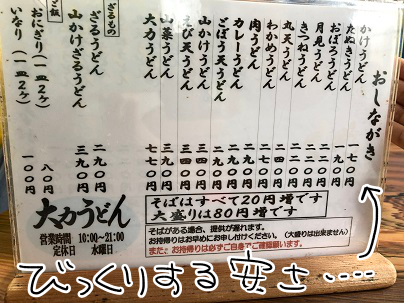 おしながき
かけうどん 一七〇
たぬきうどん 一九〇
おぼろうどん
月見うどん 二二〇
きつねうどん 二二〇
丸天うどん
わかめうどん
肉うどん 二九〇
カレーうどん 二九〇
ごぼう天うどん 二九〇
山かけうどん 三四〇
えび天うどん 三四〇
山菜うどん
大力うどん
ざるもの
ざるうどん 二九〇
山かけざるうどん 三九〇
ご飯
おにぎり(一皿2ヶ) 八〇円
いなり(一皿2ヶ) 一〇〇円
大力うどん
営業時間 10:00〜21:00
定休日 水曜日
そばはすべて20円増です
大盛りは80円増です
そばがある場合、提供が遅れます。
お持帰りはお早めにお申し付けください。(大盛りは出来ません)
また、お持帰りは必ずご自身でご確認願います。
びっくりする安さ‥‥